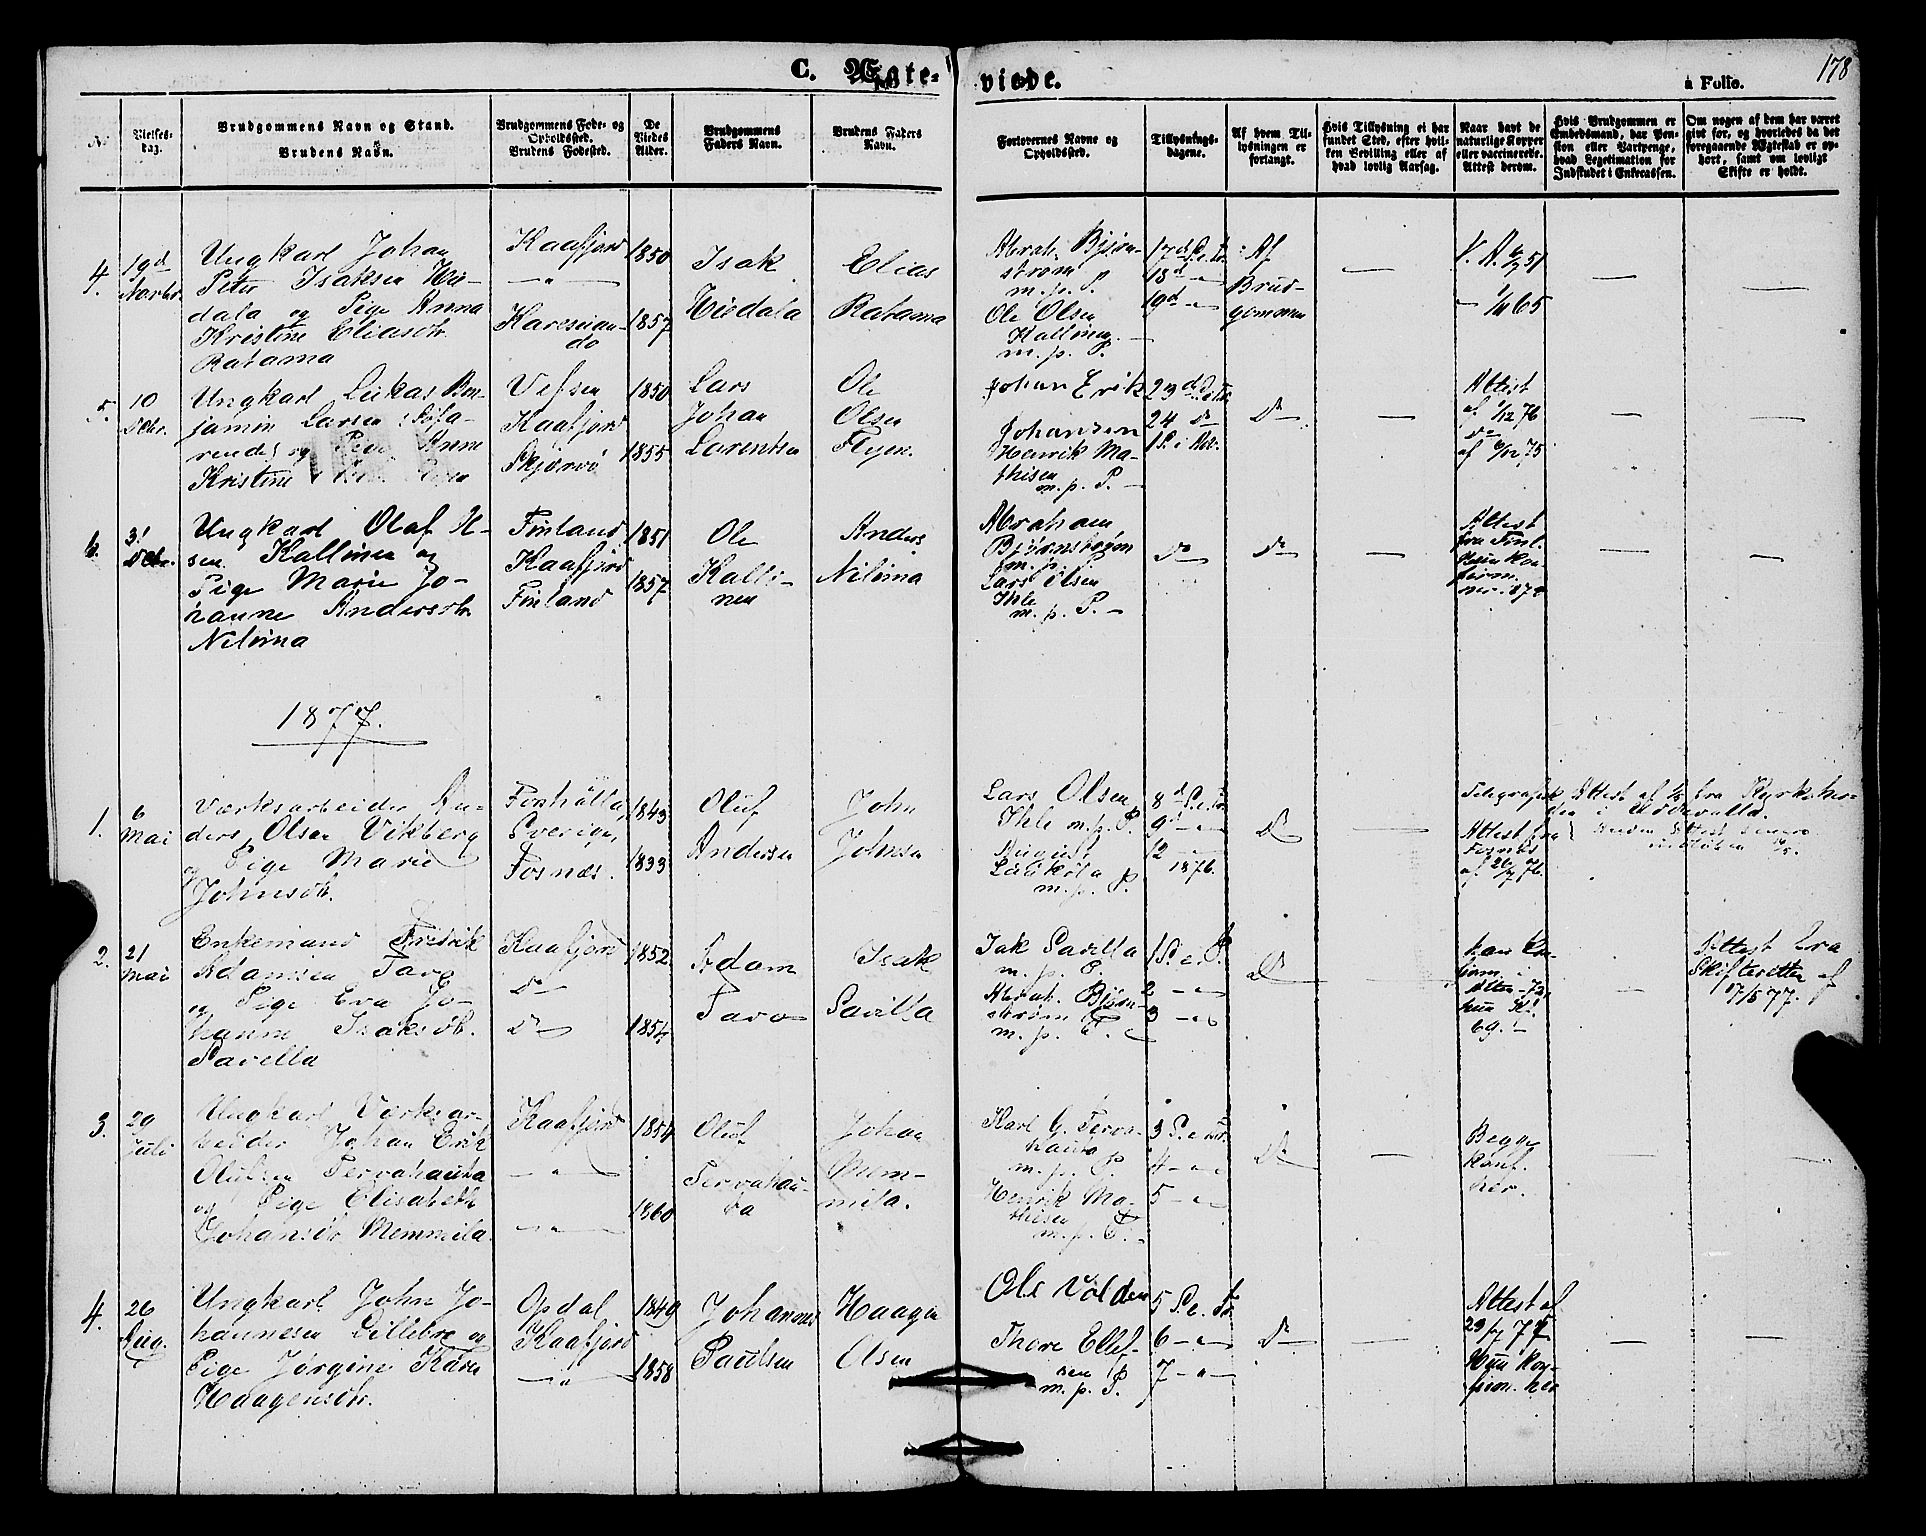 C. Ægte-
viede.
a Folio.
178
No
Vielses-
dag.
Brudgommens Navn og Stand.
Brudens Navn.
Brudgommens Føde- og
Opholdssted.
Brudens Fødested.
De
Viedes
Alder.
Brudgommens
Faders Navn.
Brudens Faders
Navn.
Forlovernes Navne og
Opholdssted.
Tillysnings-
dagene.
Af hvem Til-
lysningen er
forlangt.
Hvis Tillysning ei har
fundet Sted, efter hvil-
ken Bevilling eller af
hvad lovlig Aarsag.
Naar havt de
naturlige Kopper
eller vaccinerede.
Attest derom.
Hvis Brudgommen er
Embedsmand, har Pen-
sion eller Vartpenge,
hvad Legitimation for
Indskudet i Enkecassen.
Om nogen af dem har været
gift før, og hvorledes da det
foregaaende Ægteskab er op-
hørt, samt om lovligt
Skifte er holdt.
4.
19d
Novbr.
Ungkarl Johan
Peter Isaksen Hie-
dala og Pige Anna
Kristine Eliasdtr.
Ratama
Kaafjord
— " —
Karesuan-
do
1850
1857
Isak
Hiedala
Elias
Ratama
Abrah. Bjørn-
strøm
m. p. P.
Ole Olsen
Kallinen
m. p. P.
17d S. e. Tr.
18d — " —
19d — " —
Af
Brud-
gommen
V. A. 51
65
5.
10
Decbr.
Ungkarl Lukas Ben-
jamin Larsen
og Pige Anne
Kristine
Vefsen
Kaafjord
Skjervø
1850
1855
Lars
Johan
Larentsen
Ole
Olsen
Johan Erik
Johansen
Henrik Ma-
thisen
m. p. P.
23d S. e. Tr.
24 do
1 S. i Adv.
Do
Attest
af 1/12 76
Do
af 75
6.
31
Decbr.
Ungkarl Olaf
sen Kallinen og
Pige Marie Jo-
hanne Andersdtr.
Nelima
Finland
Kaafjord
Finland
1851
1857
Ole
Kalli-
nen
Anders
Nilima
Abraham
Bjørnstrøm
m. p. P.
Lars Olsen
Ihle
m. p. P.
Do
Do
Attest
fra Finl.
Hun kon-
firm.
her 187
1877.
1.
6
Mai
Værksarbeider An-
ders Olsen Vikberg
og Pige Marie
Johnsdtr.
Forshälla,
Sverige,
Fosnæs.
1843
1833
Oluf
Andersen
John
Johnsen
Lars Olsen
Ihle m. p. P.
August
m. p. P.
8d S. e. Tr.
9d — " —
12 —
1876.
Do
Telegrafisk Attest af fra Kyrksher-
den i Uddevalla.
Attest fra
Fosnæs
af 76.
2.
21
Mai
Enkemand Fredrik
Adamsen Tavo
og Pige Eva Jo-
hanne Isaksdtr.
Savella
Kaafjord
Do
Do
1852
1854
Adam
Tavo
Isak
Savilla
Isak Savilla
m. p. P.
Abrah. Bjørn-
strøm
m. p. P.
1 S. e. P.
2 — " —
3 — " —
Do
han kon-
firm. i
Alten
hun K.
69.
Attest fra
Skifteretten af
17/5 77.
3.
29
Juli
Ungkarl Værksar-
beider Johan Erik
Olufsen Tervahauta
og Pige Elisabeth
Johansdtr Memmila.
Kaafjord
— " —
— " —
1854
1860
Oluf
Tervahau-
ta
Johan
Mem-
mila.
Karl G. Terva-
hauta
m. p. P.
Henrik Ma-
thisen
m. p. P.
3 S. e. Tr.
4 — " —
5 — " —
Do
Begge
konf.
her.
4.
26
Aug.
Ungkarl John Jo-
hannesen Lillebro og
Pige Jørgine Karen
Haagensdtr.
Opdal
Kaafjord
— " —
1849
1858
Johannes
Paulsen
Haagen
Olsen
Ole Volden
Thore Ellef-
sen
m. p. P.
5 S. e. Tr.
6 — " —
7 — " —
Do
Attest af
29/7 77
Hun kon-
firm. her